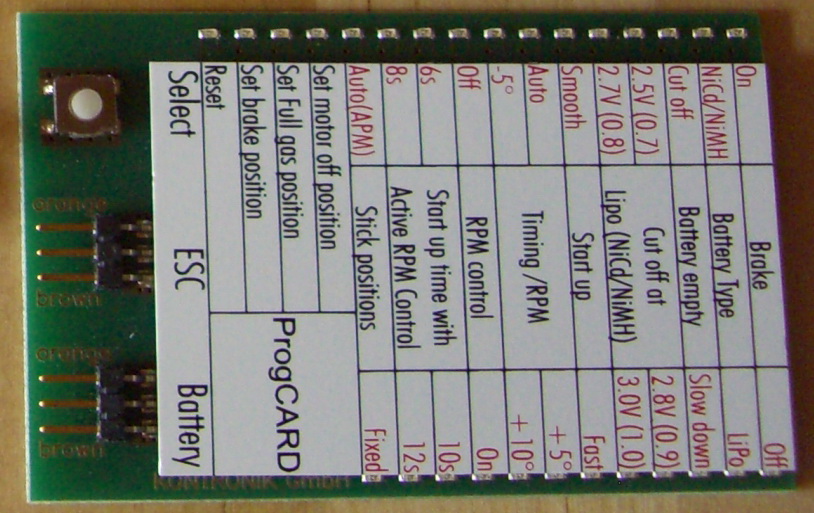 On Brake Off
NiCd/NiMH Battery Type LiPo
Cut off Battery empty Slow down
2.5V (0.7) Cut off at 2.8V (0.9)
2.7V (0.8) Lipo (NiCd/NiMH) 3.0V (1.0)
Smooth Start up Fast
Auto Timing/RPM +5°
-5° +10°
Off RPM control On
6s Start up time with 10s
8s Active RPM Control 12s
Auto(APM) Stick positions Fixed
Set motor off position
Set Full gas position
Set brake position
Reset
ProgCARD
Select ESC Battery
orange
brown
orange
brown
KONTRONIK GmbH